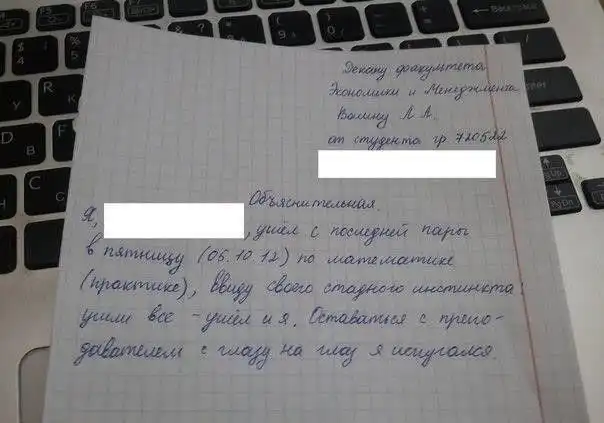 Декану факультета
Экономики и Менеджмента
Валину А.А.
от студента гр 720522
Объяснительная.
Я, , ушёл с последней пары
в пятницу (05.10.12) по математике
(практике), ввиду своего стадного инстинкта:
ушли все - ушёл и я. Оставаться с препо-
давателем с глазу на глаз я испугался.